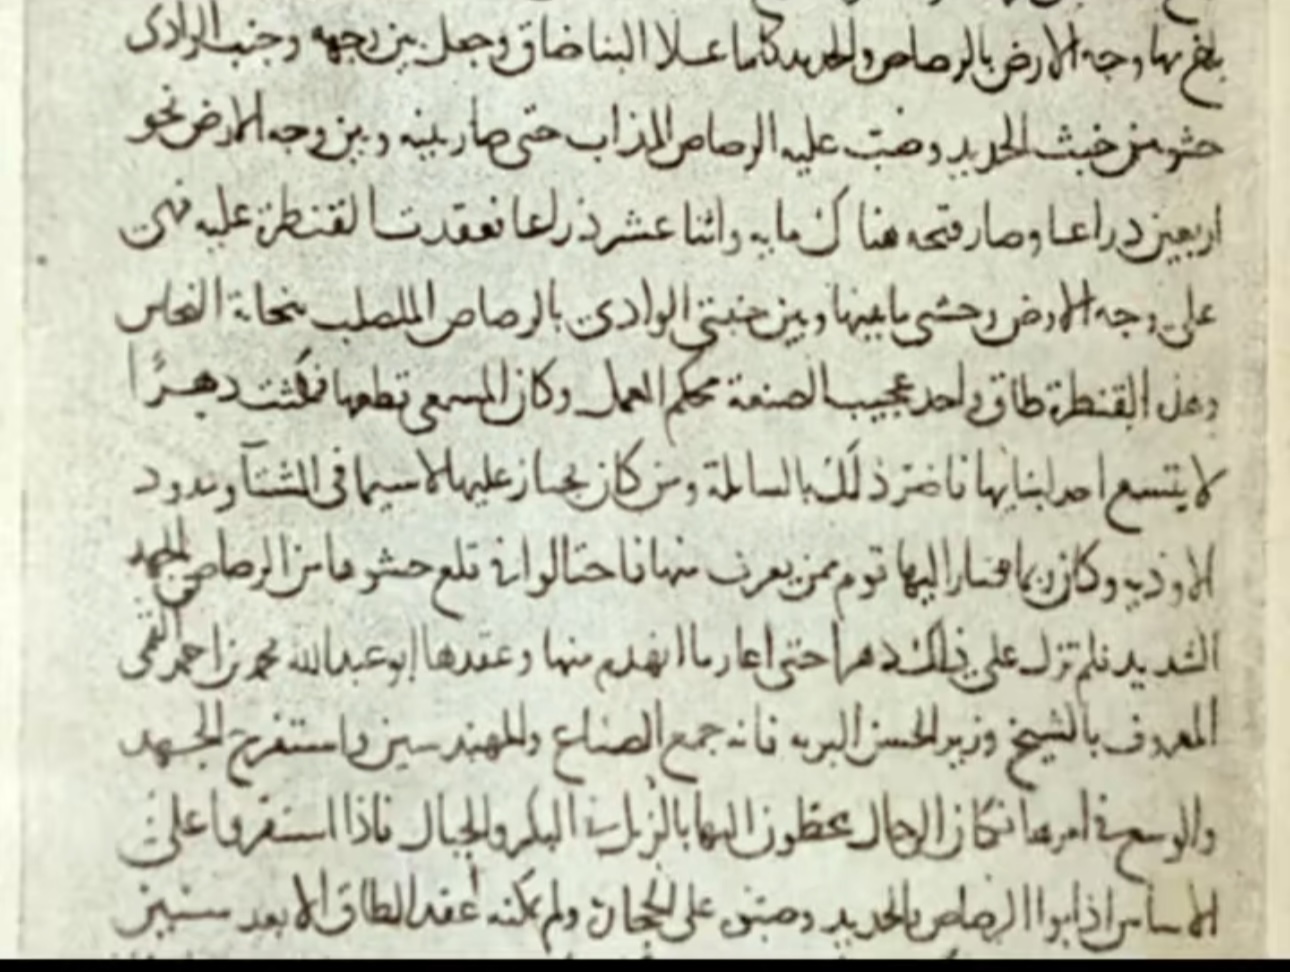 بلغ بها وجه الارض بالرصاص والحديد كلما علا البنا ضاق وجعل بين وجهه وجنب الوادى
حشو من خبث الحديد وصب عليه الرصاص المذاب حتى صار بينه وبين وجه الارض نحو
اربعين دراعا وصار فتحه هناك مايه واثنا عشر ذراعا فعقدت القنطرة عليه فهى
على وجه الارض وحشى ما بينها وبين جنبتى الوادى بالرصاص المصلب بنحاتة النحاس
وهذه القنطرة طاق واحد عجيب الصنعة محكم العمل وكان المسمعى قطعها فمكثت دهرًا
لا يتسع احد لبنايها فاضر ذلك بالسابلة ومن كان يجتاز عليها لا سيما فى الشتآ ومدود
الاوديه وكان ربما صار اليها قوم ممن يعرف منها فاحتالوا فى قلع حشوها من الرصاص بالجهد
الشديد فلم تزل على ذلك دهرا حتى اعاد ما انهدم منها وعقدها ابو عبدالله محمد بن احمد القمى
المعروف بالشيخ وزير الحسن البويه فانه جمع الصناع والمهندسين واستفرغ الجهد
والوسع فى امرها فكان الرجال يحطون اليها بالزبل فى البكر والحبال فاذا استقروا على
الاساس اذابوا الرصاص والحديد وصبوه على الحجارة ولم يمكنه عقد الطاق الا بعد سنين